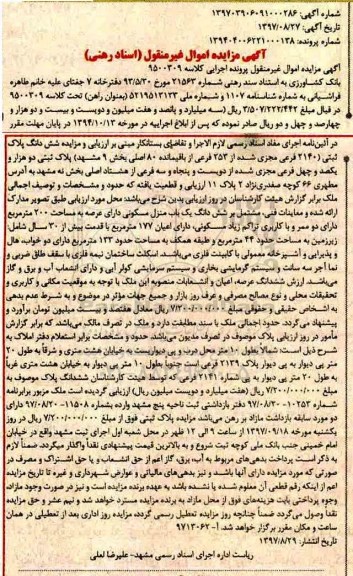 شماره آگهی: ۱۳۹۷۰۳۹۰۶۰۹۱۰۰۰۲۸۶
تاریخ آگهی: ۱۳۹۷/۰۸/۲۷
شماره پرونده: ۱۳۹۴۰۴۰۰۶۲۲۱۰۰۰۱۳۸
آگهی مزایده اموال غیرمنقول (اسناد رهنی)
آگهی مزایده اموال غیرمنقول پرونده اجرایی کلاسه ۹۵۰۰۳۰۹
بانک کشاورزی به استناد سند رهنی شماره ۲۱۵۶۳ مورخ ۹۳/۵/۳۰ دفترخانه ۷ جغتای علیه خانم طاهره
قراشیبانی به شماره شناسنامه ۱۱۰۷ و شماره ملی ۵۲۱۹۵۱۳۱۲۳ (بعنوان راهن) تحت کلاسه ۹۵۰۰۳۰۹
در قبال مبلغ ۳/۵۰۷/۲۲۲/۴۴۲ ریال (سه میلیارد و پانصد و هفت میلیون و دویست و بیست و دو هزار و
چهارصد و چهل و دو ریال صادر نموده که پس از ابلاغ اجراییه در مورخه ۱۳۹۴/۱۰/۱۳ در پایان مهلت مقرر
در آئین‌نامه اجرای مفاد اسناد رسمی لازم الاجرا و تقاضای بستانکار مبنی بر ارزیابی و مزایده شش دانگ پلاک
ثبتی (۲۱۴۰ فرعی مجزی شده از ۲۵۳ فرعی از باقیمانده ۸۰ اصلی بخش ۹ مشهد) پلاک ثبتی دو هزار و
یکصد و چهل فرعی مجزی شده از دویست و پنجاه و سه فرعی از هشتاد اصلی بخش نه مشهد به آدرس
مطهری ۶۶ کوچه صفدری‌نژاد ۲ پلاک ۱۱ ارزیابی و قطعیت یافته که حدود و مشخصات و توصیف اجمالی
ملک برابر گزارش هیئت کارشناسان در روز ارزیابی بدین شرح می‌باشد: محل مورد ارزیابی طبق تصویر مدارک
ارائه شده و معاینات فنی مشتمل بر شش دانگ یک باب منزل مسکونی دارای عرصه به مساحت ۲۰۰ مترمربع
دارای دو ممر و با کاربری تراکم زیاد مسکونی، دارای اعیان ۱۷۷ مترمربع با قدمت بیش از ۳۰ سال شامل:
زیرزمین به مساحت حدود ۴۴ مترمربع و طبقه همکف به مساحت حدود ۱۳۳ مترمربع دارای دو خواب، هال
و پذیرایی و آشپزخانه معمولی با کابینت فلزی می‌باشد. اسکلت ساختمان نیمه فلزی با سقف طاق ضربی و
نما آجر سه سانت و سیستم گرمایشی بخاری و سیستم سرمایشی کولر آبی و دارای انشعاب آب و برق و گاز
می‌باشد. ارزش ششدانگ عرصه، اعیان و انشعابات منصوبه این ملک با توجه به موقعیت مکانی و کاربری و
تحقیقات محلی و نوع مصالح مصرفی و عرف روز بازار و جمیع جهات مؤثر در موضوع و به شرط عدم بدهی
به اشخاص حقیقی و حقوقی مبلغ ۷/۲۰۰/۰۰۰/۰۰۰ ریال معادل هفتصد و بیست میلیون تومان برآورد و
پیشنهاد می‌گردد. حدود اجمالی ملک با سند مطابقت دارد و ملک در تصرف مالک می‌باشد که برابر گزارش
مأمور در روز ارزیابی پلاک موصوف در تصرف مدیون می‌باشد: حدود و مشخصات برابر استعلام دفتر املاک به
شرح ذیل است: شمالا بطول ۱۰ متر محل درب و پی دیواریست به خیابان هشت متری و شرقاً به طول ۲۰
متر پی دیوار به پی دیوار پلاک ۲۱۳۹ فرعی است جنوبا بطول ۱۰ متر پی دیوار به خیابان هشت متری غرباً
به طول ۲۰ متر پی دیوار به پی دیوار ۲۱۴۱ فرعی که توسط هیئت کارشناسان ششدانگ پلاک موصوف به
مبلغ ۷/۲۰۰/۰۰۰/۰۰۰ ریال (هفت میلیارد و دویست میلیون ریال) ارزیابی گردیده است ملک مزبور برابرنامه
شماره ۱۰۲۵۳-۹۷/۰۸/۳۰ دفتر بازداشتی ثبت ناحیه پنج مشهد وارده بشماره ۱۱۵۰۸-۹۷/۰۸/۲۰ دارای
دو مورد سابقه بازداشت مازاد بر رهن می‌باشد مزایده پلاک ثبتی فوق از مبلغ ۷/۲۰۰/۰۰۰/۰۰۰ ریال در روز
یکشنبه مورخه ۱۳۹۷/۰۹/۱۸ از ساعت ۹ الی ۱۲ ظهر در محل شعبه اول اجرای ثبت مشهد واقع در خیابان
امام خمینی جنب بانک ملی کوچه ثبت شروع و به بالاترین قیمت پیشنهادی نقداً واگذار میگردد. ضمناً لازم
به ذکر است پرداخت بدهی‌های مربوط به آب، برق، گاز اعم از حق انشعاب و یا حق اشتراک و مصرف در
صورتی که مورد مزایده دارای آنها باشد و نیز بدهی‌های مالیاتی و عوارض شهرداری و غیره تا تاریخ مزایده
اعم از اینکه رقم قطعی آن معلوم شده یا نشده باشد به عهده برنده مزایده است و نیز در صورت وجود مازاد،
وجوه پرداختی بابت هزینه‌های فوق از محل مازاد به برنده مزایده مسترد خواهد شد و نیم عشر و حق مزایده
نقداً وصول می‌گردد ضمناً چنانچه روز مزایده تعطیل رسمی گردد، مزایده روز اداری بعد از تعطیلی در همان
ساعت و مکان مقرر برگزار خواهد شد. آ-۹۷۱۳۰۶۲
تاریخ انتشار: ۱۳۹۷/۸/۲۹
ریاست اداره اجرای اسناد رسمی مشهد-علیرضا لعلی